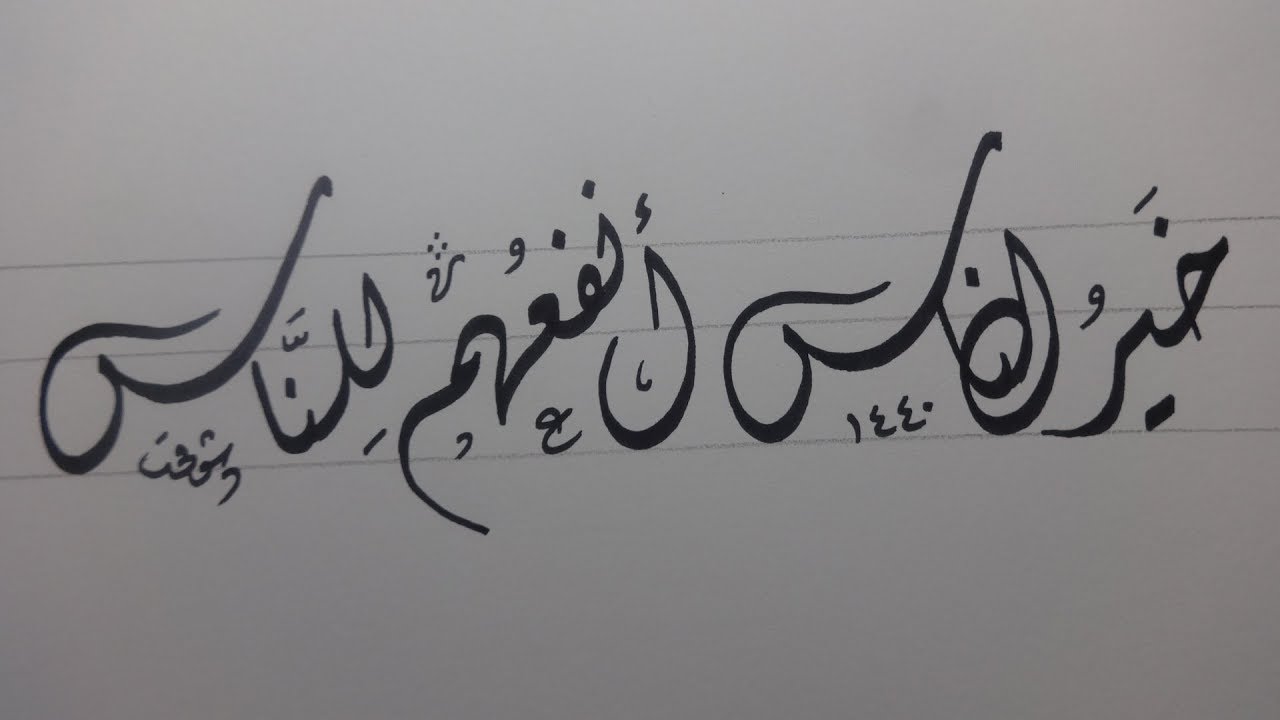 خَيرُ الناس أنفعُهم لِلنَّاس
١٤٤٠